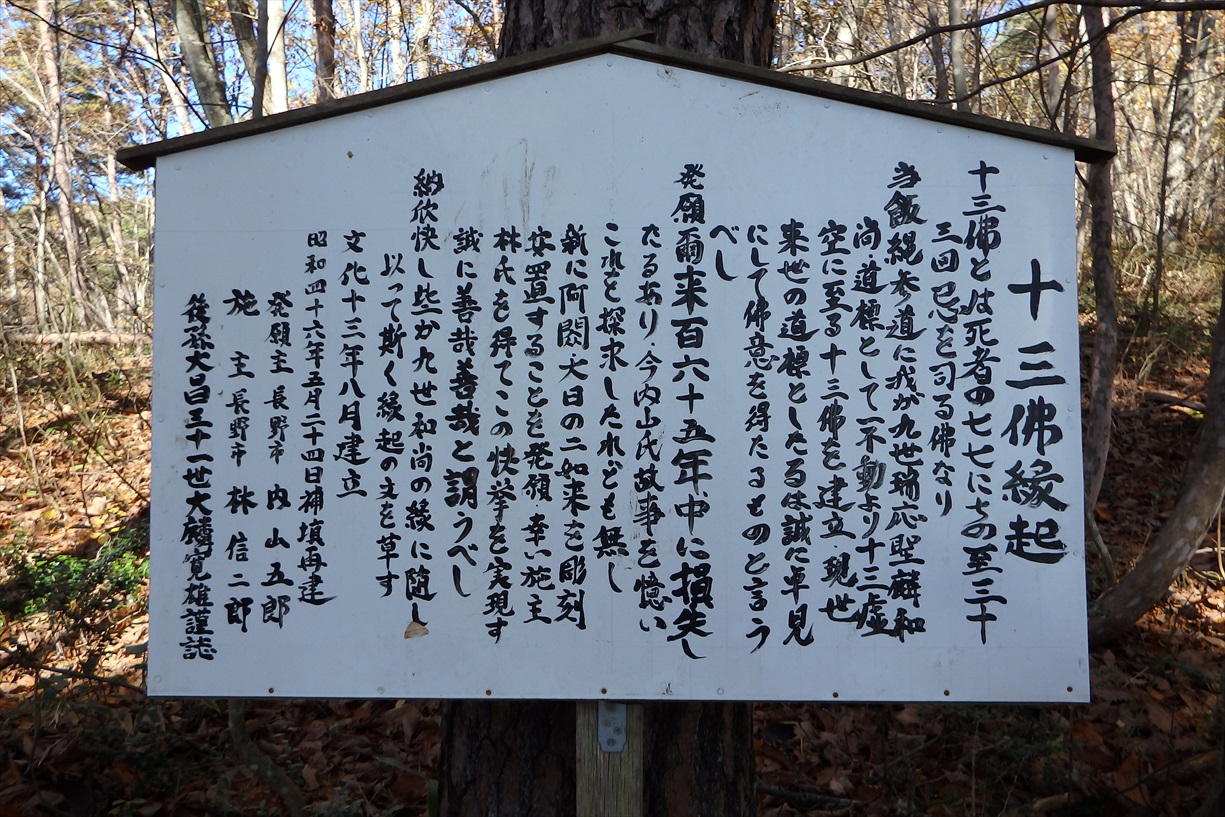 十三佛縁起
十三佛とは死者の七七にちの至三十
三回忌を司る佛なり
当飯縄参道に我が九世瑞応聖麟和
尚・道標として一不動より十三虚
空に至る十三佛を建立・現世
来世の道標としたるは誠に卓見
にして佛意を得たるものと言う
べし
発願爾来百六十五年中に損失し
たるあり・今内山氏故事を憶い
これを探求したれども無し
新に阿閦・大日の二如来を彫刻
安置することを発願・幸い施主
林氏を得てこの快挙を実現す
誠に善哉善哉と謂うべし
納欣快し些か九世和尚の縁に随し
以って斯く縁起の文を草す
文化十三年八月建立
昭和四十六年五月二十四日補填再建
発願主 長野市 内山五郎
施主 長野市 林信二郎
後孫大昌三十一世大麟寛雄謹誌